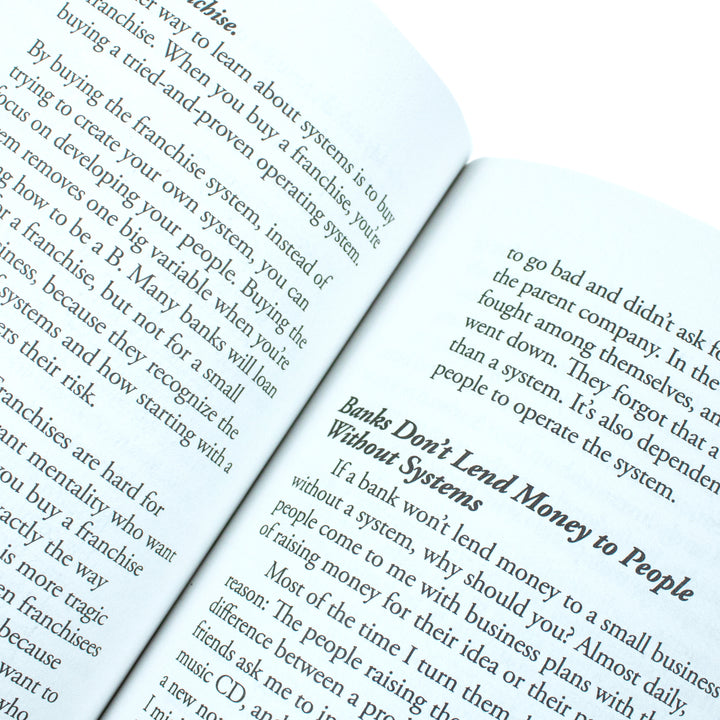 nchise.
er way to learn about systems is to buy
franchise. When you buy a franchise, you're
buying a tried-and-proven operating system.
By buying the franchise system, instead of
trying to create your own system, you can
focus on developing your people. Buying the
em removes one big variable when you're
g how to be a B. Many banks will loan
or a franchise, but not for a small
iness, because they recognize the
systems and how starting with a
ers their risk.
anchises are hard for
rant mentality who want
you buy a franchise
xactly the way
is more tragic
en franchisees
because
want to
who
to go bad and didn't ask fo
the parent company. In the
fought among themselves, an
went down. They forgot that a
than a system. It's also dependen
people to operate the system.
Banks Don't Lend Money to People
Without Systems
If a bank won't lend money to a small business
without a system, why should you? Almost daily,
people come to me with business plans with th
of raising money for their idea or their p
Most of the time I turn them
reason: The people raising the
difference between a pro
friends ask me to in
music CD, and
a new no
I mi